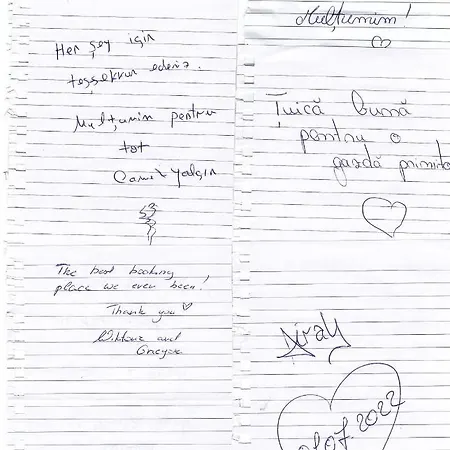 Her şey için
teşşekkur ederiz.
Mulțumim pentru
tot
Yalçın
The best booking
place we ever been!
Thank you
and
Mulțumim!
Țuică bună
pentru o
gazdă primito
07.2022